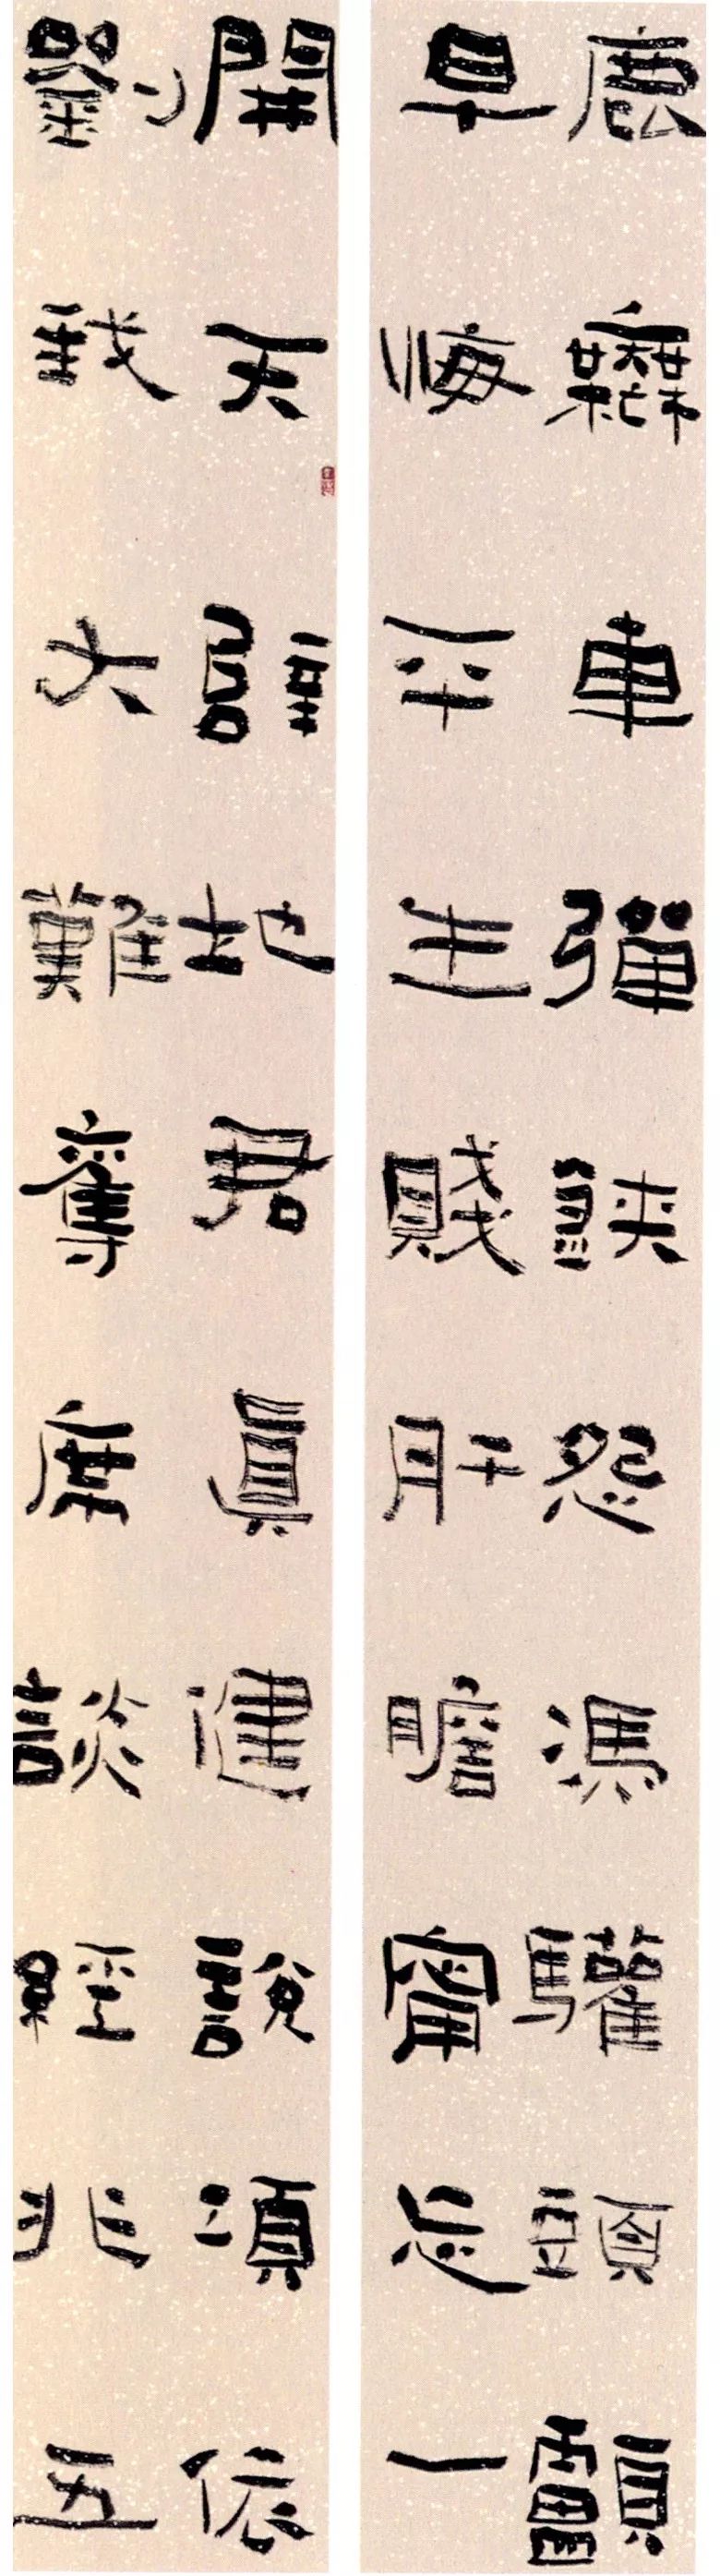 開天辟地君真健說項依
劉我大難奪席談經非五
鹿無車彈鋏怨馮驩頭顱
早悔平生賤肝膽甯忘一